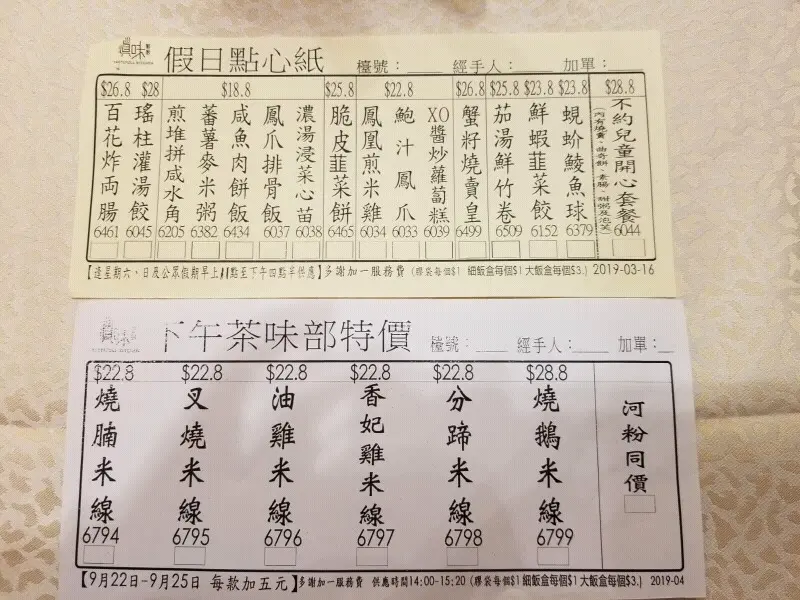 真味
假日點心紙
檯號：
經手人：
加單：
$26.8 $28 $18.8 $25.8 $22.8 $26.8 $25.8 $23.8 $23.8 $28.8
百花炸両腸
瑤柱灌湯餃
煎堆拼咸水角
蕃薯麥米粥
咸魚肉餅飯
鳳爪排骨飯
濃湯浸菜心苗
脆皮韮菜餅
鳳凰煎米雞
鮑汁鳳爪
XO醬炒蘿蔔糕
蟹籽燒賣皇
茄湯鮮竹卷
鮮蝦韮菜餃
蜆蚧鯪魚球
不約兒童開心套餐
(內有燒賣、曲奇餅、素腸、甜粥及泡芙)
6461 6045 6205 6382 6434 6037 6038 6465 6034 6033 6039 6499 6509 6152 6379 6044
【逢星期六、日及公眾假期早上11點至下午四點半供應】多謝加一服務費 (膠袋每個$1 細飯盒每個$1 大飯盒每個$3.) 2019-03-16
下午茶味部特價
檯號：
經手人：
加單：
$22.8 $22.8 $22.8 $22.8 $22.8 $28.8
燒腩米線
叉燒米線
油雞米線
香妃雞米線
分蹄米線
燒鵝米線
河粉同價
6794 6795 6796 6797 6798 6799
【9月22日-9月25日 每款加五元】多謝加一服務費 供應時間14:00-15:20 (膠袋每個$1 細飯盒每個$1 大飯盒每個$3.) 2019-04